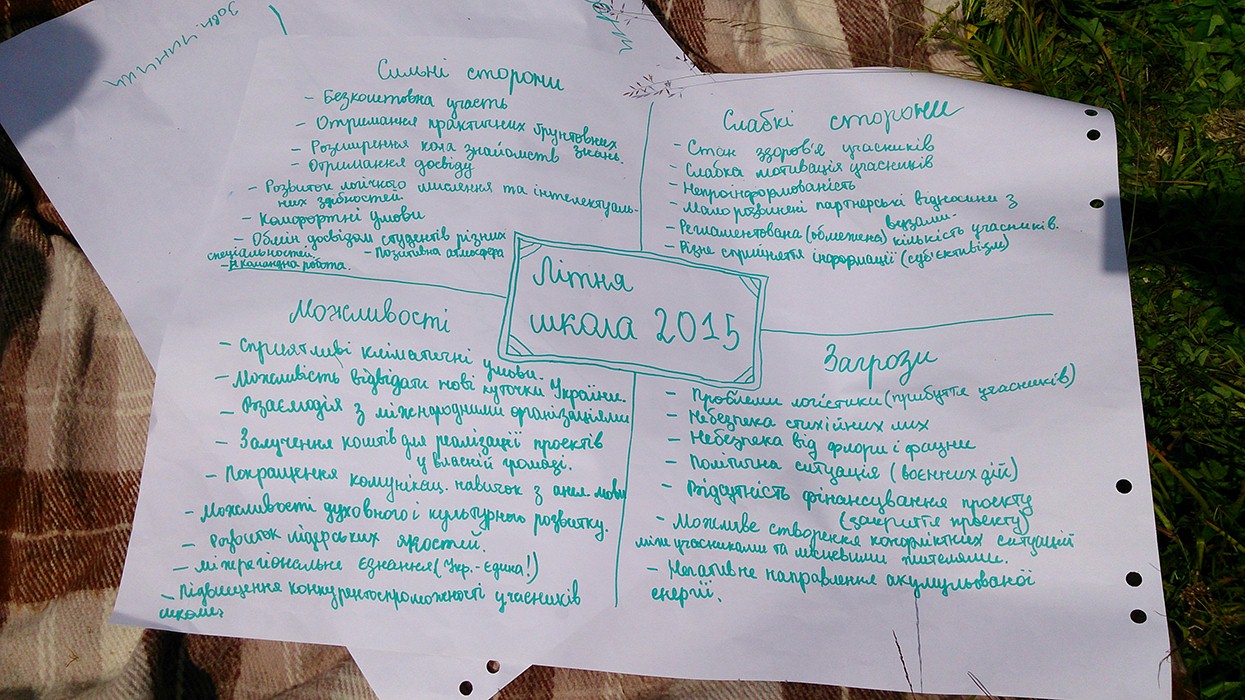 Зовн. чинники
Сильні сторони
- Безкоштовна участь
- Отримання практичних ґрунтовних
знань.
- Розширення кола знайомств
- Отримання досвіду
- Розвиток логічного мислення та інтелектуаль-
них здібностей.
- Комфортні умови
- Обмін досвідом студентів різних
спеціальностей. - Позитивна атмосфера
- Командна робота.
Слабкі сторони
- Стан здоров'я учасників
- Слабка мотивація учасників
- Непроінформованість
- Мало розвинені партнерські відносини з
вузами.
- Регламентована (обмежена) кількість учасників.
- Різне сприйняття інформації (суб'єктивізм)
Літня
школа 2015
Можливості
- Сприятливі кліматичні умови.
- Можливість відвідати нові куточки України.
- Взаємодія з міжнародними організаціями
- Залучення коштів для реалізації проектів
у власній громаді.
- Покращення комунікац. навичок з англ. мови
- Можливості духовного і культурного розвитку.
- Розвиток лідерських якостей.
- міжрегіональне єднання (Укр. - Єдина!)
- Підвищення конкурентоспроможності учасників
школи
Загрози
- Проблеми логістики (прибуття учасників)
- Небезпека стихійних лих
- Небезпека від флори і фауни
- Політична ситуація (воєнних дій)
- Відсутність фінансування проекту
(закриття проекту)
- Можливе створення конфліктних ситуацій
між учасниками та місцевими жителями.
- Негативне направлення акумульованої
енергії.